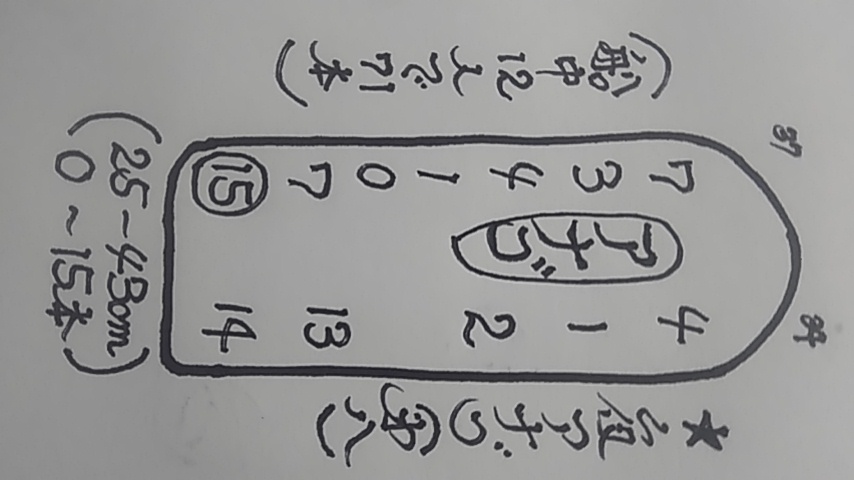 (船中12人で71本)
★夜アナゴ(
7 4
3 1
アナゴ
4 2
1
0
7 13
⑮ 14
(25-43cm
0~15本)